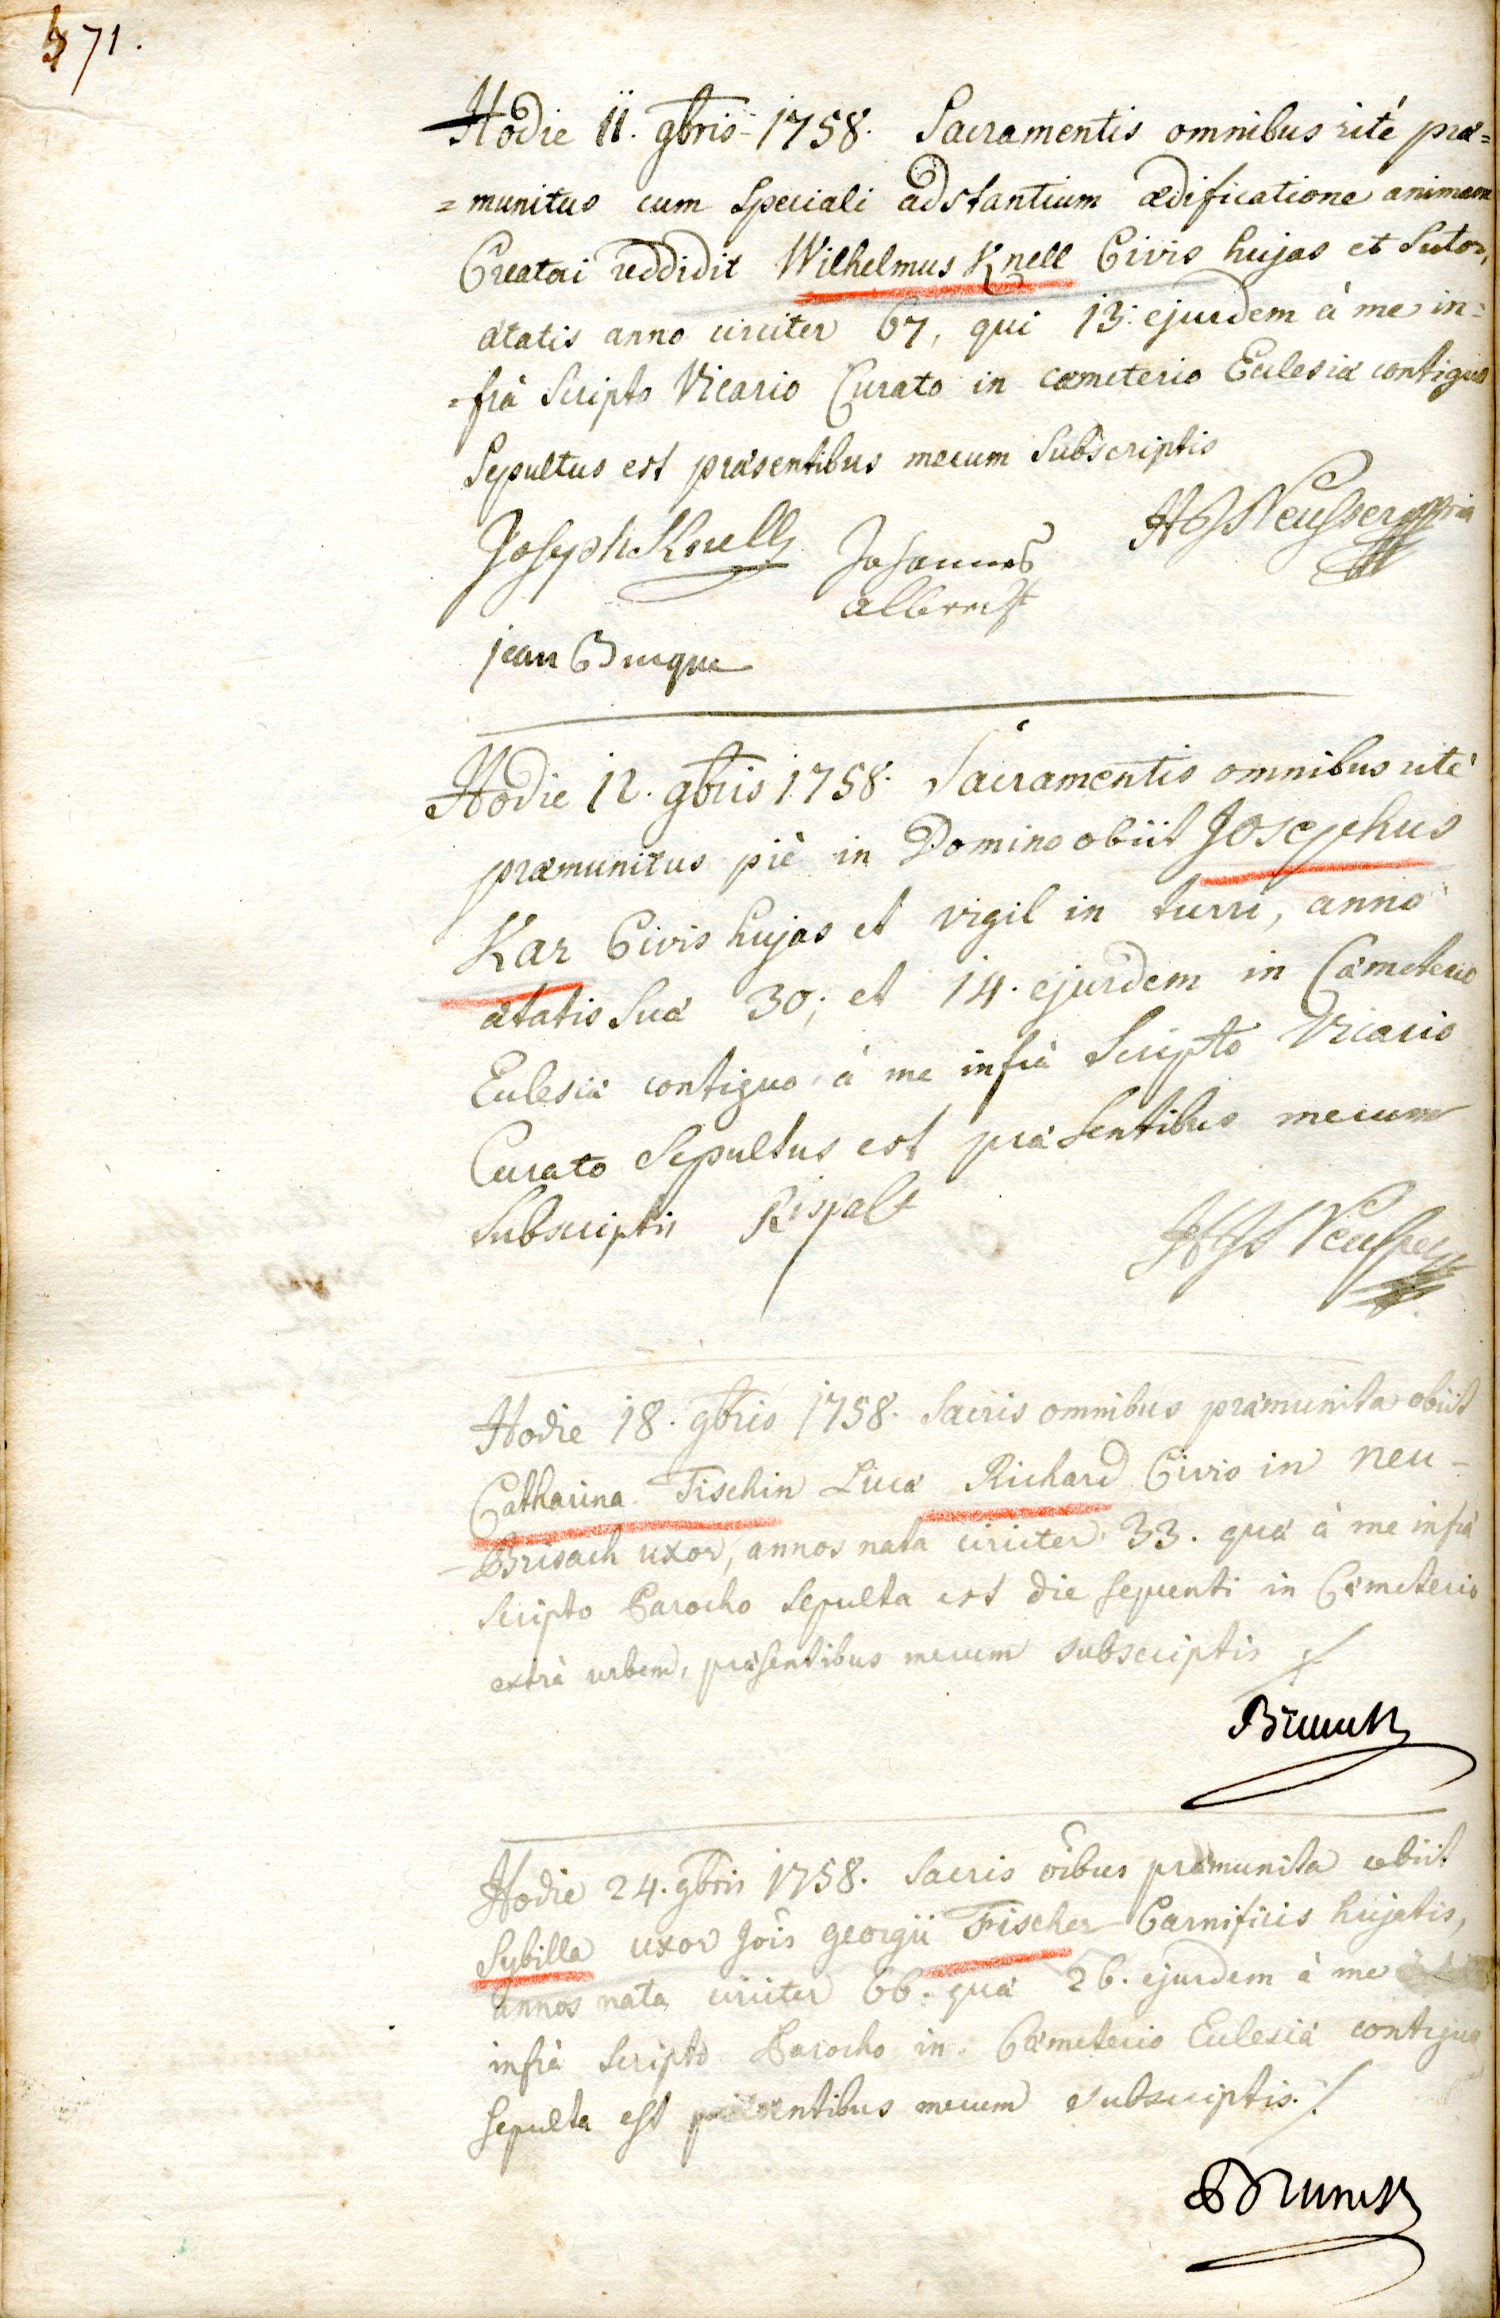 571.
Hodie 11. 9bris 1758. Sacramentis omnibus rité præ=
=munitus cum speciali adstantium ædificatione animam
Creatori reddidit Wilhelmus Knell Civis hujas et Sutor,
ætatis anno circiter 67, qui 13. ejusdem à me in=
=frà scripto Vicario Curato in cæmeterio Ecclesiæ contiguo
Sepultus est præsentibus mecum Subscriptis
Joseph Knell Johannes HJNeusser mpria
albrecht
jean
Hodie 12. 9bris 1758. Sacramentis omnibus rité
præmunitus piè in Domino obiit Josephus
Kar Civis hujas et vigil in turri, anno
ætatis suæ 30; et 14. ejusdem in Cæmeterio
Ecclesiæ contiguo à me infrà scripto Vicario
Curato Sepultus est præsentibus mecum
Subscriptis Rispalt HJNeusser
Hodie 18. 9bris 1758. Sacris omnibus præmunita obiit
Catharina Fischin Lucæ Richard Civis in neu-
-Brisach uxor, annos nata circiter 33. quæ à me infrà
scripto Parocho sepulta est die sequenti in Cæmeterio
extrà urbem, præsentibus mecum subscriptis ./.
Brunck
Hodie 24. 9bris 1758. Sacris oībus præmunita obiit
Sybilla uxor Jois georgii Fischer Carnificis hujatis,
annos nata circiter 66. quæ 26. ejusdem à me
infrà scripto Parocho in Cæmeterio Ecclesiæ contiguo
sepulta est præsentibus mecum subscriptis ./.
Brunck